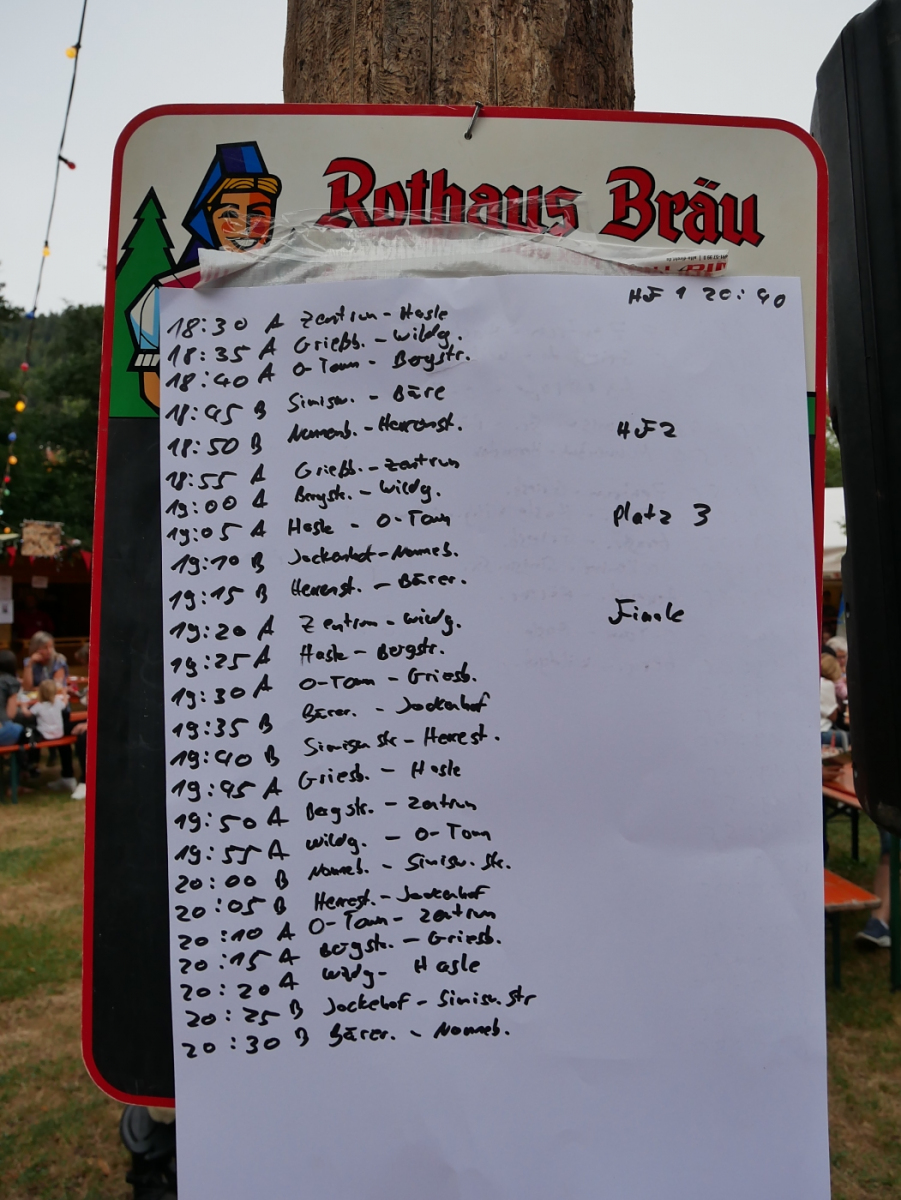 Rothaus Bräu
HF 1 20:40
18:30 A Zentrum - Hasle
18:35 A Grießb. - Wildg.
18:40 A O-Town - Bergstr.
18:45 B Simisw. - Bäre
18:50 B Nonnenb. - Herrenst.
HF2
18:55 A Grießb. - Zentrum
19:00 A Bergstr. - Wildg.
19:05 A Hasle - O-Town
Platz 3
19:10 B Jockenhof - Nonneb.
19:15 B Herrenst. - Bärer.
Finale
19:20 A Zentrum - Wildg.
19:25 A Hasle - Bergstr.
19:30 A O-Town - Griesb.
19:35 B Bärer. - Jockenhof
19:40 B Simisw str - Herrest.
19:45 A Griesb. - Hasle
19:50 A Bergstr. - Zentrum
19:55 A Wildg. - O-Town
20:00 B Nonneb. - Simisw. Str.
20:05 B Herrest. - Jockenhof
20:10 A O-Town - Zentrum
20:15 A Bergstr. - Griesb.
20:20 A Wildg - Hasle
20:25 B Jockehof - Simisw. Str
20:30 B Bärer. - Nonneb.